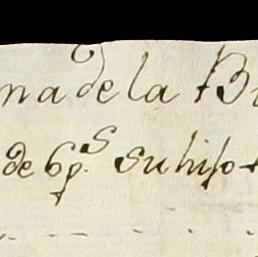 na de la B
de 6 p.s su hijo